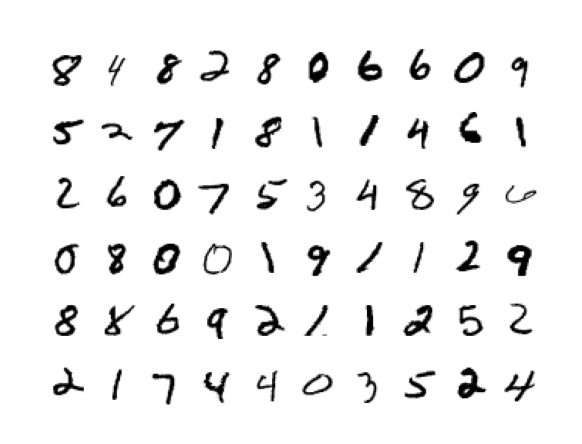 8 4 8 2 8 0 6 6 0 9
5 2 7 1 8 1 1 4 6 1
2 6 0 7 5 3 4 8 9 6
0 8 0 0 1 9 1 1 2 9
8 8 6 9 2 1 1 2 5 2
2 1 7 4 4 0 3 5 2 4